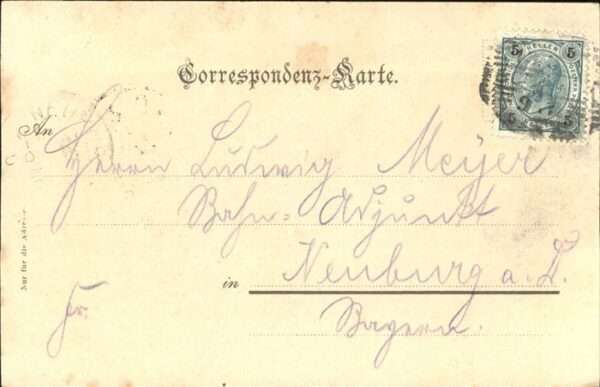 5 HELLER 5
Correspondenz-Karte.
An
Herrn Ludwig Meyer
Bahn-Adjunkt
in Neuburg a. D.
Bayern.
Nur für die Adresse